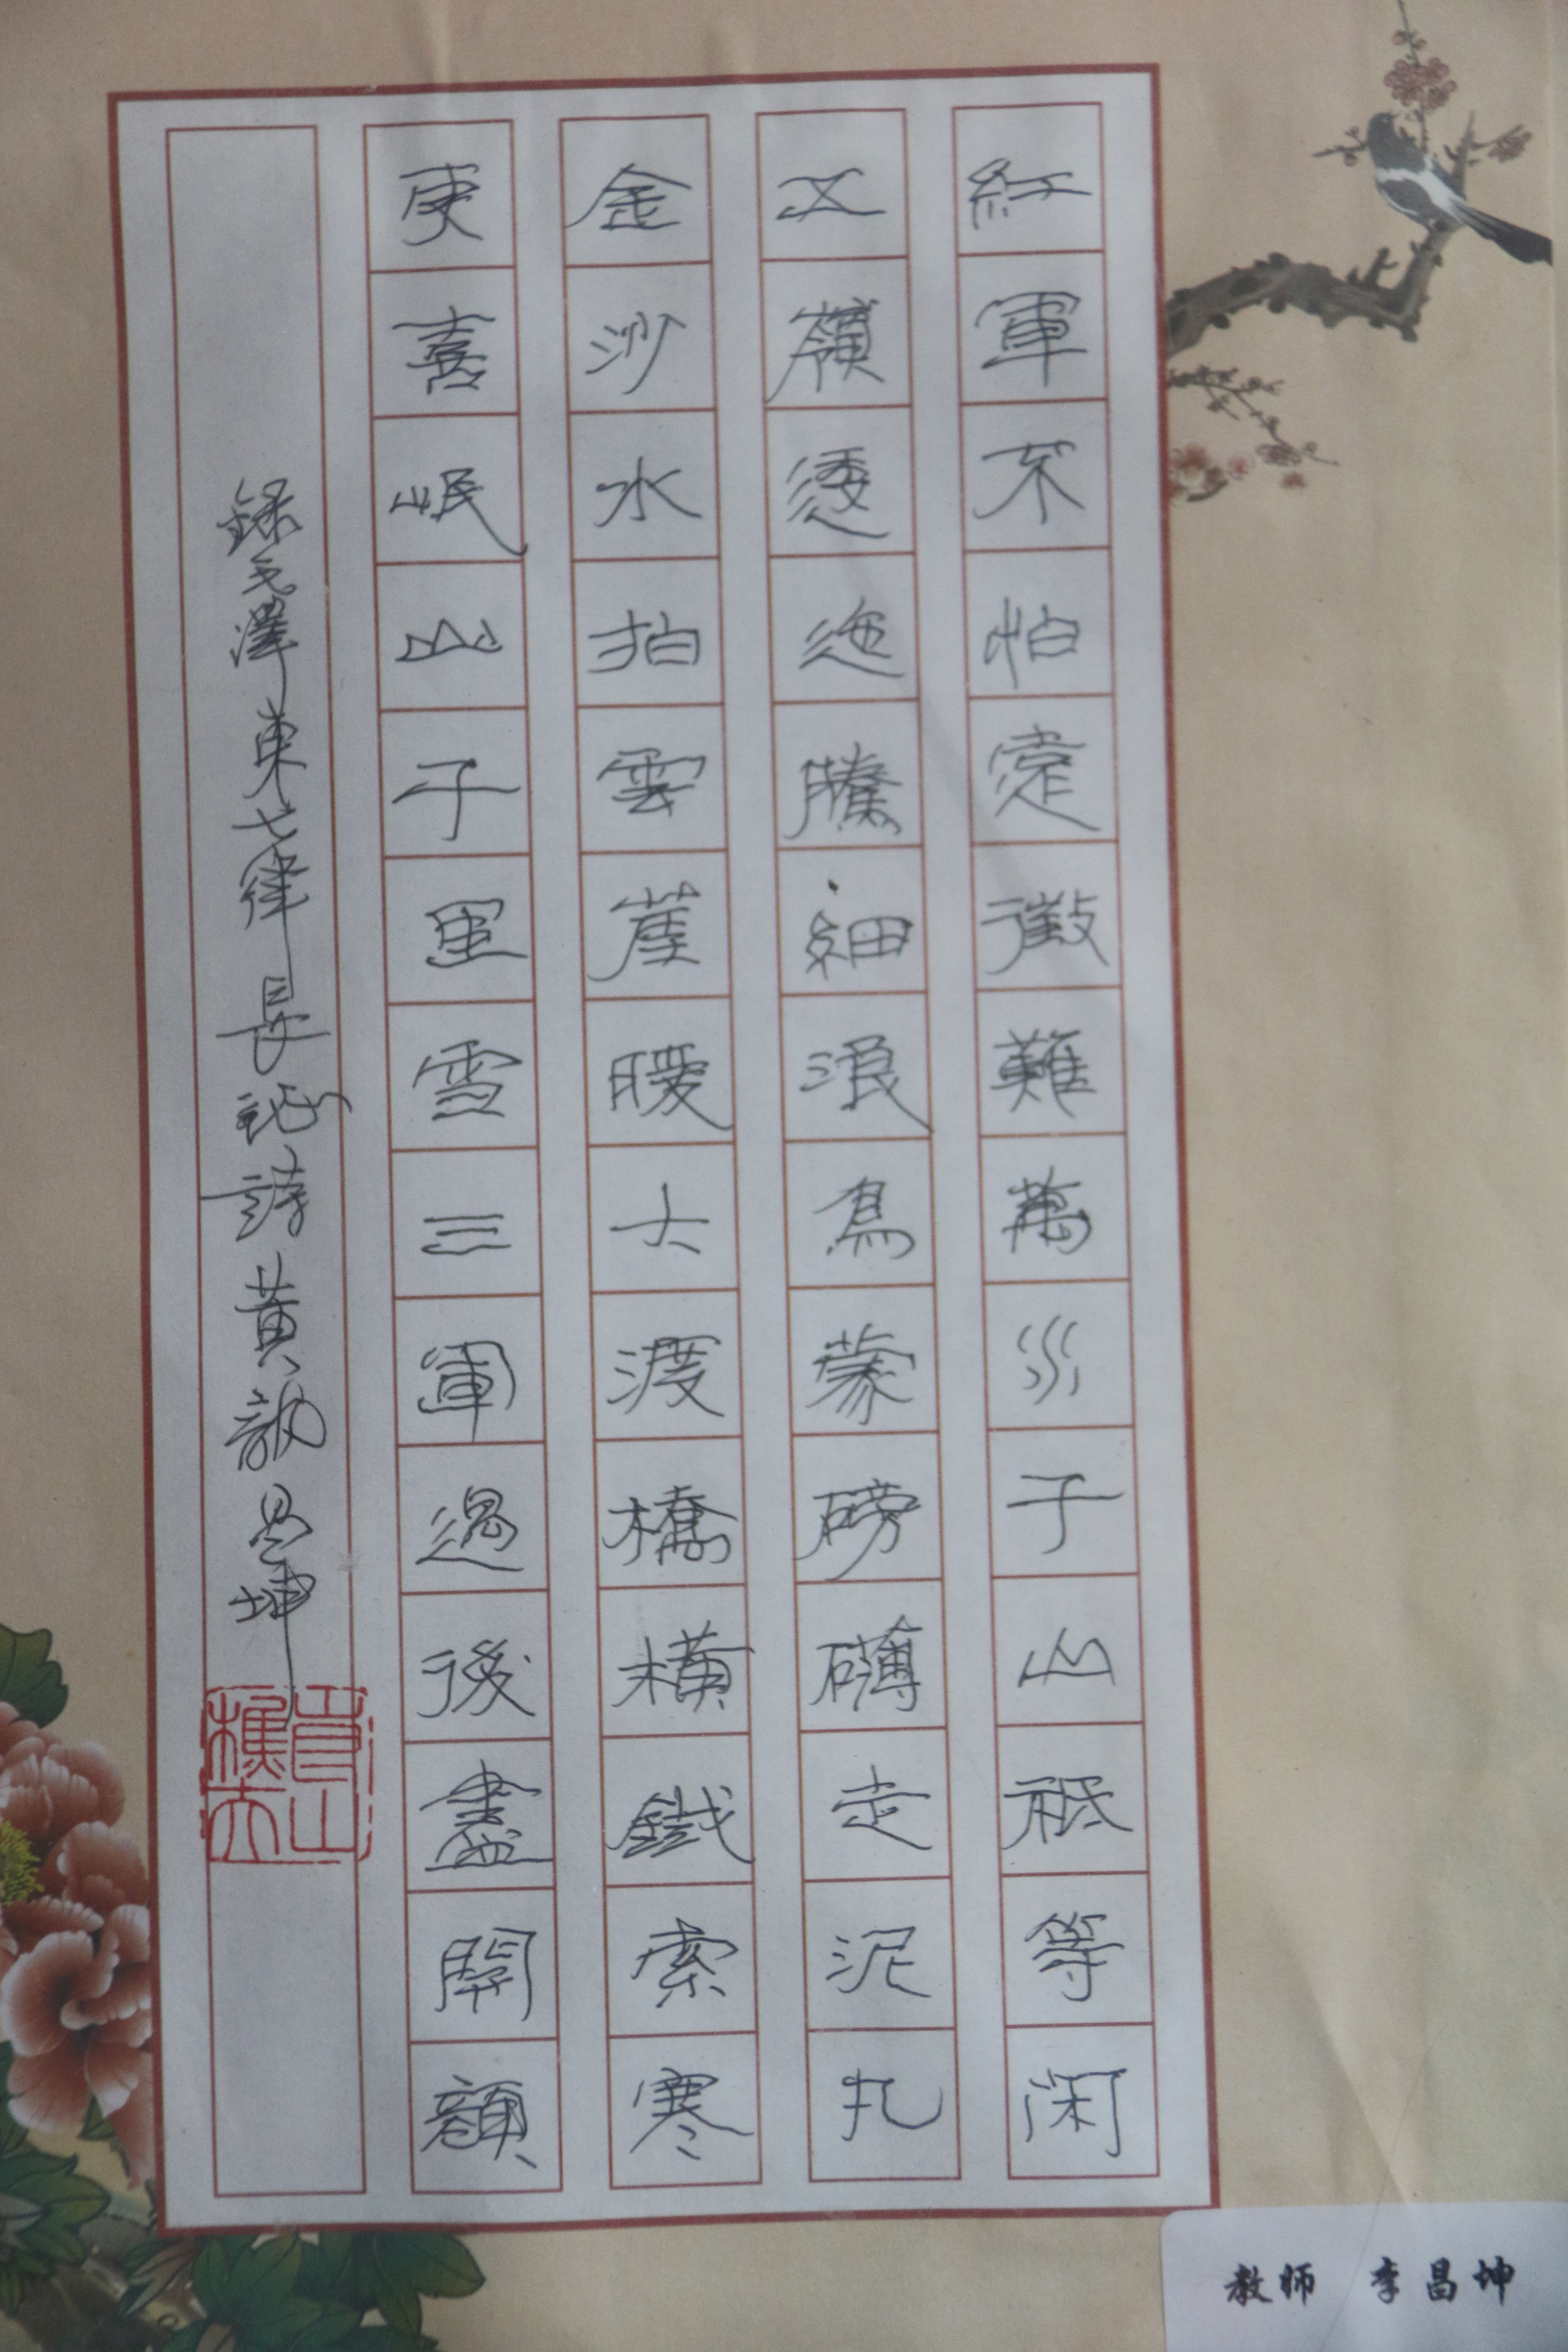 紅軍不怕遠徵難萬水千山祗等闲
五嶺逶迤騰細浪烏蒙磅礴走泥丸
金沙水拍雲崖暖大渡橋橫鐵索寒
更喜岷山千里雪三軍過後盡開顏
錄毛澤東七律長征詩黃昌坤
教师 李昌坤